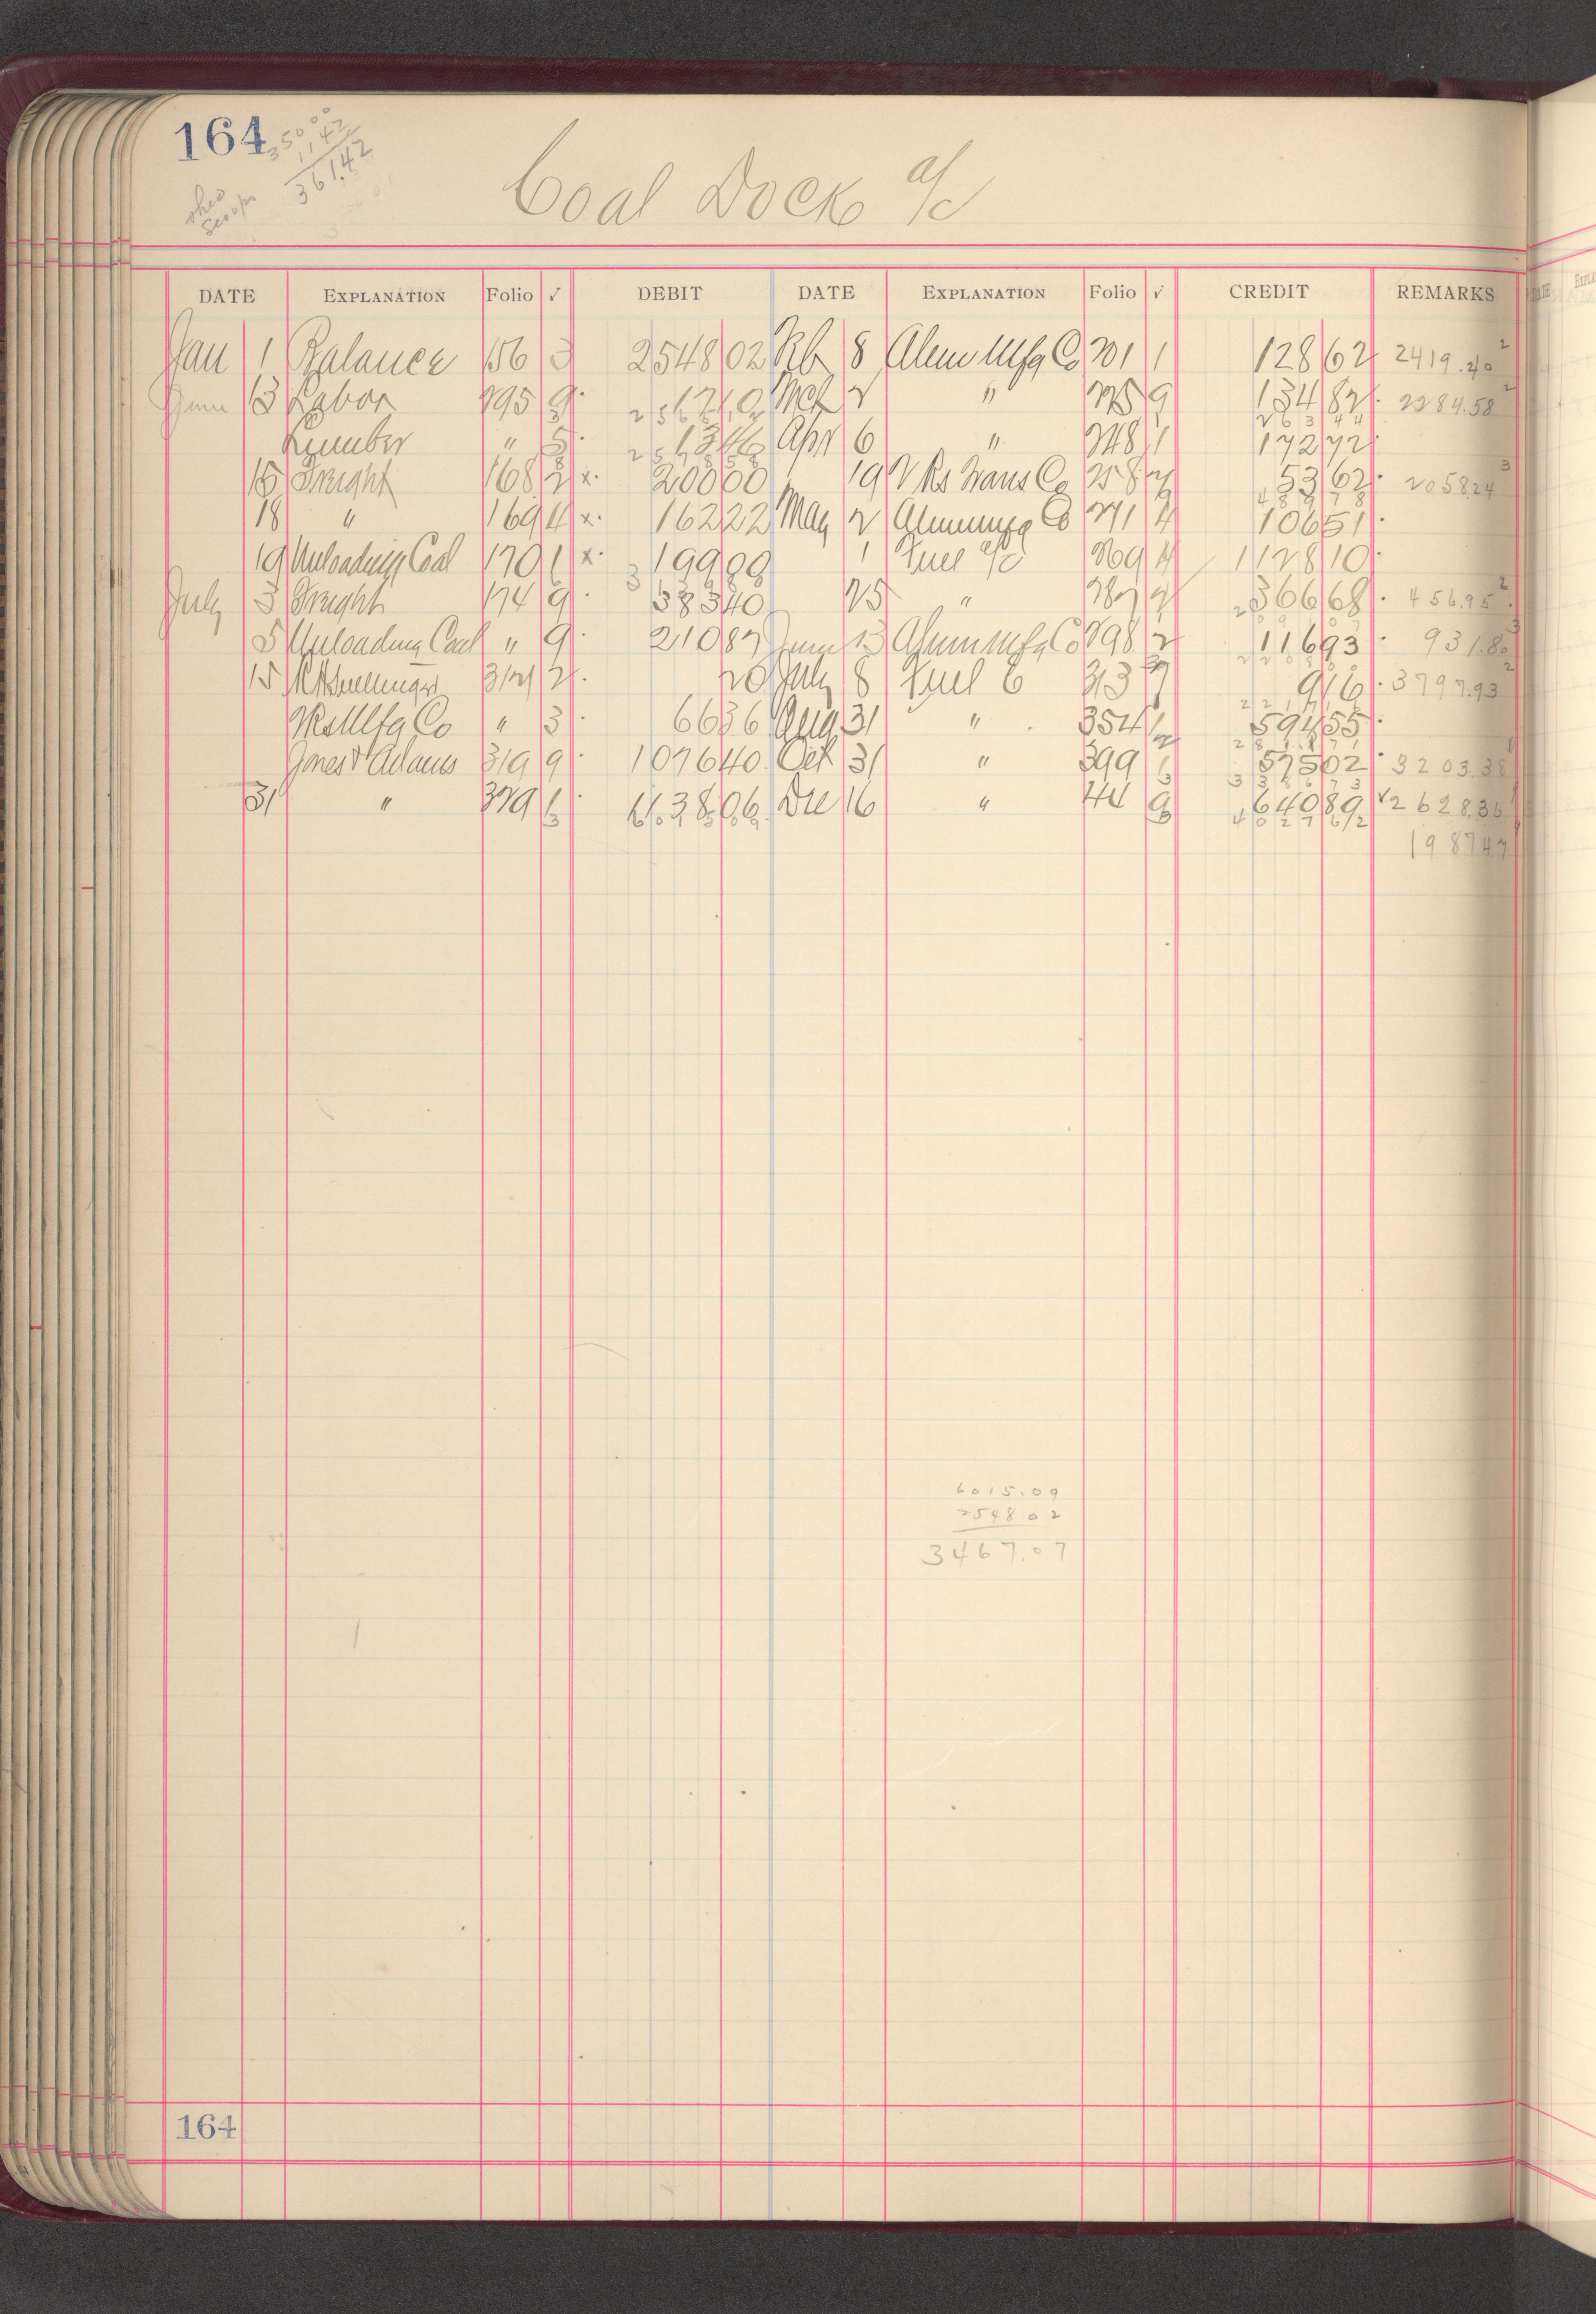 164
350 00
11 42
361.42
Coal Dock a/c
DATE EXPLANATION Folio √ DEBIT DATE EXPLANATION Folio √ CREDIT REMARKS
Jan 1 Balance 156 3 2548 02 Feb 8 Alum Mfg Co 201 1 128 62 2419.40
June 13 Labor 295 9 Mch 2 " 225 9 134 82 2284.58
Lumber " 5 Apr 6 " 248 1 172 72
15 Freight 168 2 x 200 00 19 2 Rs Trans Co 258 53 62 2058.24
18 " 169 4 x 162 22 May 2 Alum Mfg Co 271 4 106 51
19 Unloading Coal 170 1 x 199 99 1 Fuel a/c 269 4 1128 10
July 3 Freight 174 9 383 40 25 " 287 366 68 456.95
5 Unloading Coal " 9 210 87 June 13 Alum Mfg Co 298 2 116 93 931.80
15 2 20 July 8 Fuel 313 9 16 3797.93
Mfg Co " 3 66 36 Aug 31 " 354 594 55
Jones & Adams 319 9 1076 40 Oct 31 " 399 575 02 3203.38
31 " 329 Dec 16 " 441 9 640 89 2628.36
1987.47
6015.09
2548 02
3467.07
164